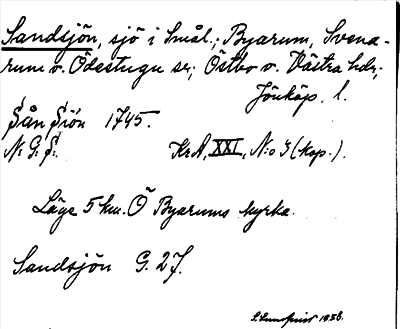 Sandsjön, sjö i Smål.; Byarum, Svena-
rum o. Ödestugu sr; Östbo o. Västra hdr;
Jönköp. l.
Sån Siön 1745.
N: G: S: KrA, XXI, N:o 3 (kop.).
Läge 5 km. Ö Byarums kyrka.
Sandsjön G. 27.
1938.